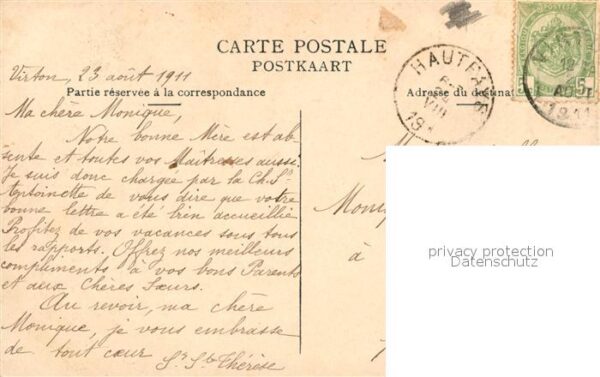 CARTE POSTALE
POSTKAART
Virton, 23 août 1911
Partie réservée à la correspondance
Adresse du destinat
HAUTFAYS
VIII
AOUT
1911
5
Ma chère Monique,
Notre bonne Mère est ab-
sente et toutes vos Maîtresses aussi.
Je suis donc chargée par la Ch. St
de vous dire que votre
bonne lettre a été bien accueillie
Profitez de vos vacances sous tous
les rapports. Offrez nos meilleurs
compliments à vos bons Parents
et aux Chères Sœurs.
Au revoir, ma chère
Monique, je vous embrasse
de tout cœur
Sr Ste Thérèse
Moni
à
privacy protection
Datenschutz